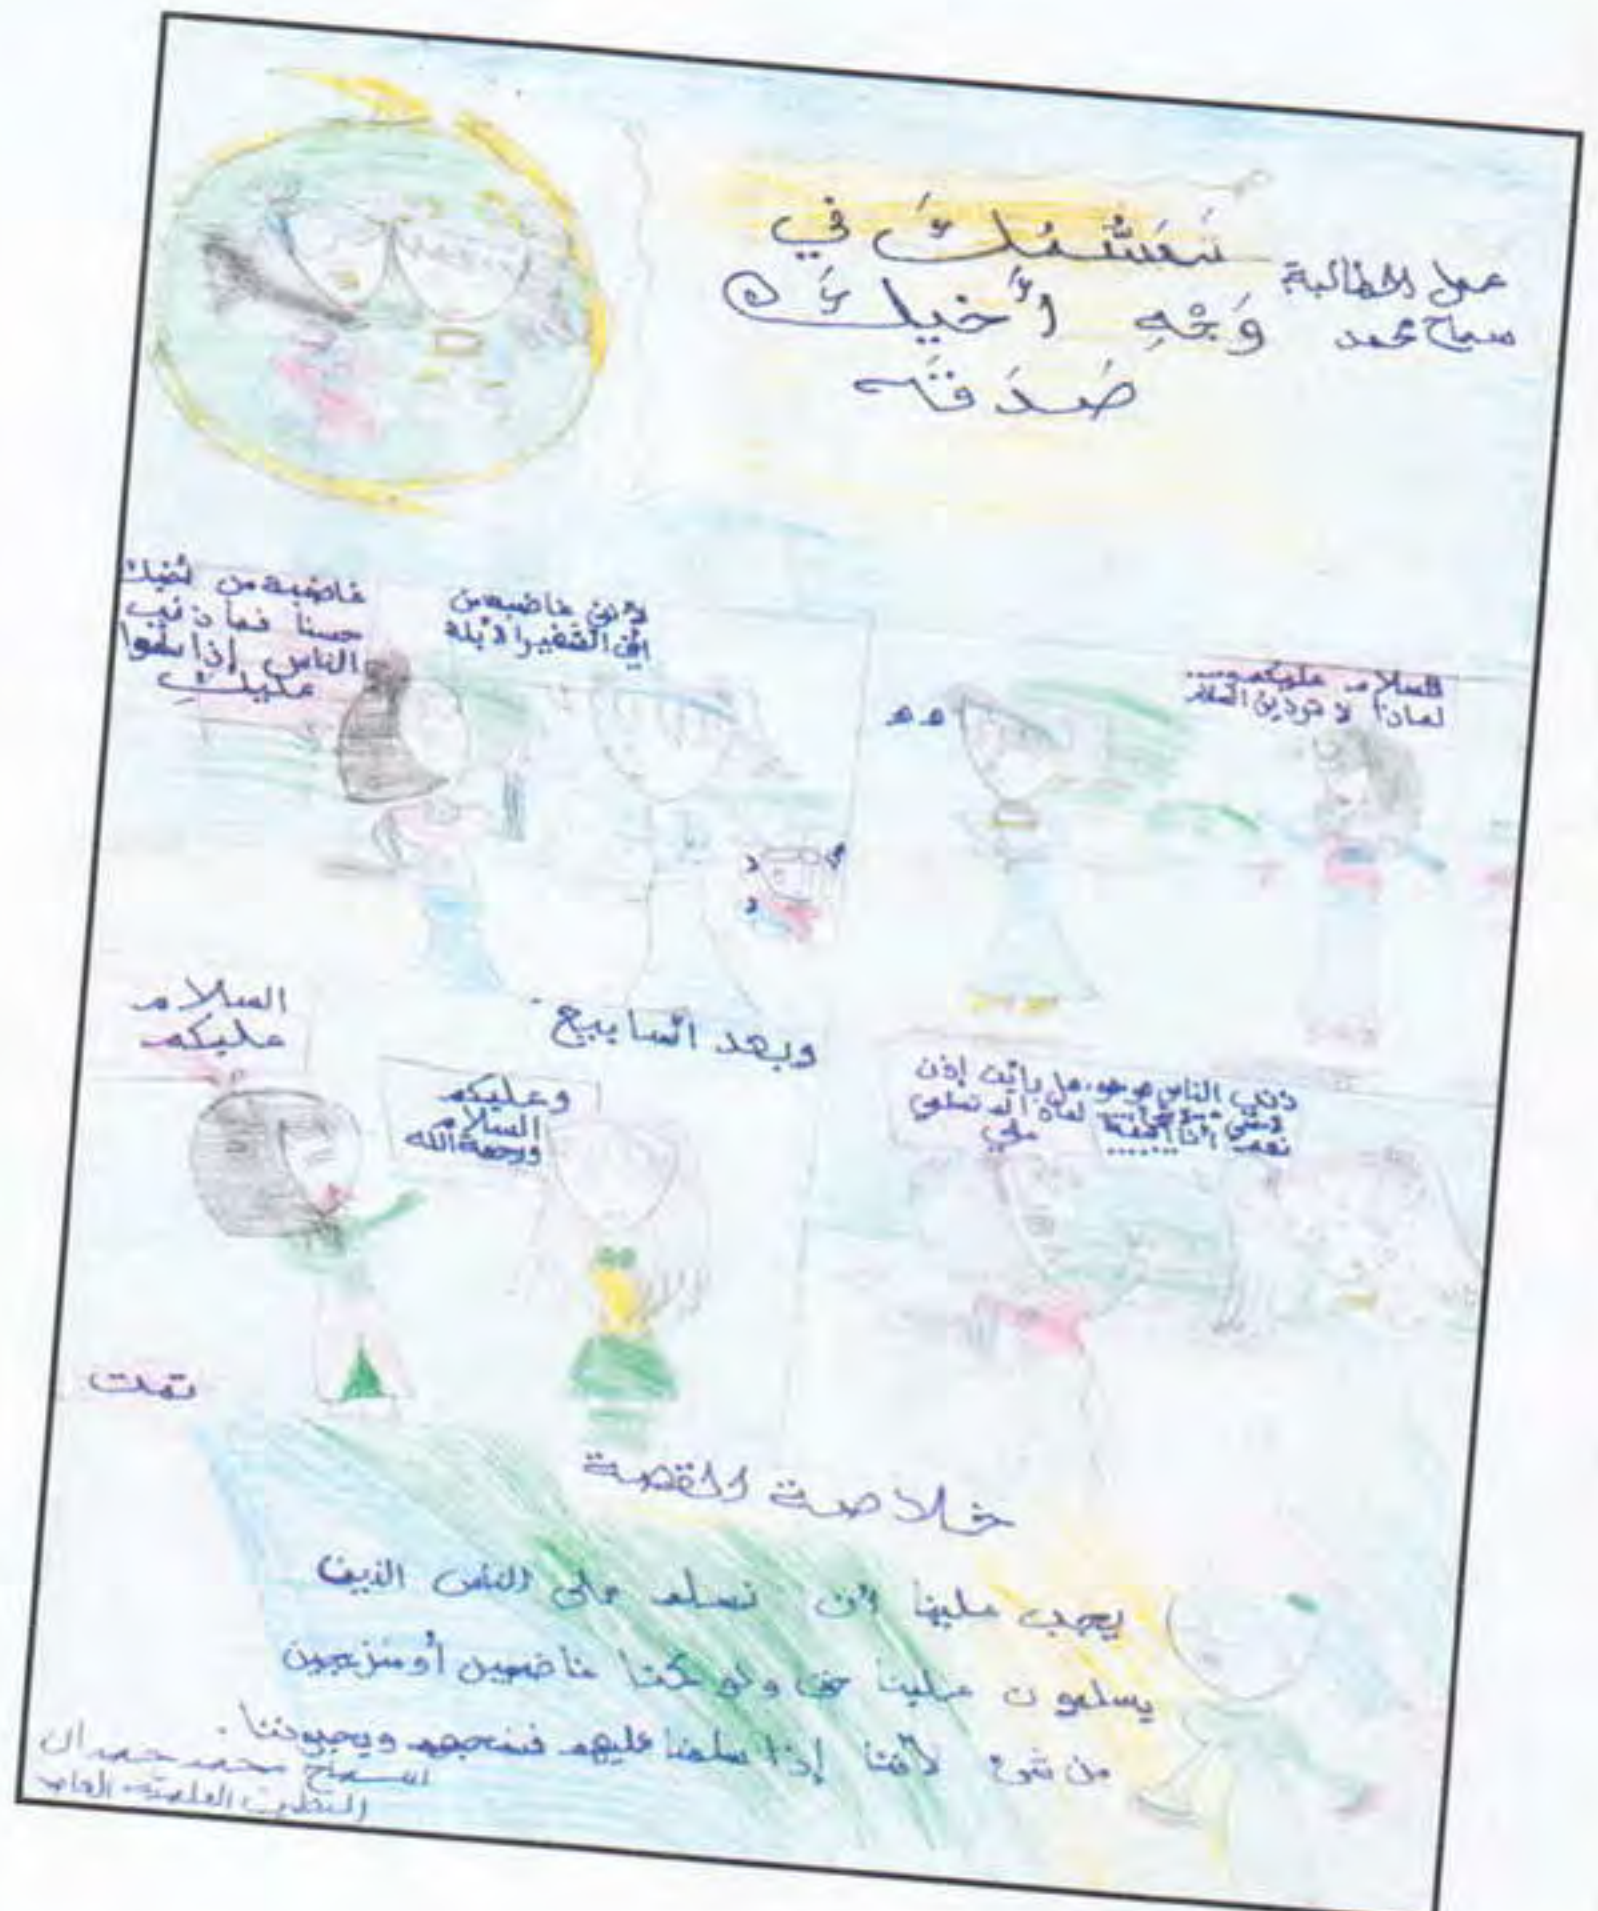 عمل الطالبة
سماح محمد
تبسمك في
وَجْهِ أخيكَ
صَدَقَه
السلام عليكم....
لماذا لا تردين السلام
هه
لأنني غاضبة من
أخي الصغير الأبله
غاضبة من أخيك
حسناً فما ذنب
الناس إذا سلموا
عليكِ
ذنب الناس هو هو، هل يا إذن
لماذا لم تسلمي
نعم أنا آسفة ....... علي
وبعد أسابيع
السلام
عليكم
وعليكم
السلام
ورحمة الله
تمت
خلاصة القصة
يجب علينا أن نسلم على الناس الذين
يسلمون علينا حتى ولو كنا غاضبين أو منزعجين
من شيء لأننا إذا سلمنا عليهم فنحبهم ويحبوننا.
سماح محمد حمدان